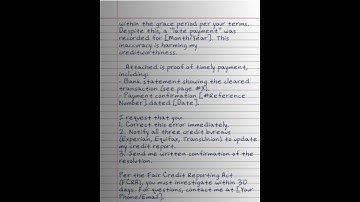 within the grace period per your terms.
Despite this, a "late payment" was
recorded for [Month/Year]. This
inaccuracy is harming my
creditworthiness.
Attached is proof of timely payment,
including:
- Bank statement showing the cleared
transaction (see page #X).
- Payment confirmation [#Reference
Number] dated [Date].
I request that you:
1. Correct this error immediately.
2. Notify all three credit bureaus
(Experian, Equifax, TransUnion) to update
my credit report.
3. Send me written confirmation of the
resolution.
Per the Fair Credit Reporting Act
(FCRA), you must investigate within 30
days. For questions, contact me at [Your
Phone/Email].